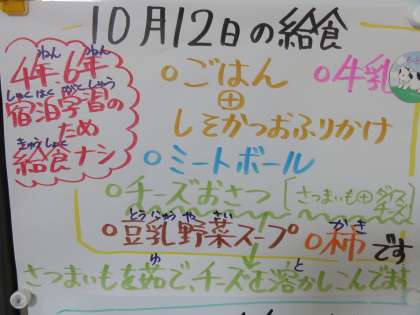 10月12日の給食
4年、6年
宿泊学習の
ため
給食ナシ
ねん ねん
しゅくはく がくしゅう
きゅうしょく
○ごはん
＋
しそかつおふりかけ
○牛乳
○ミートボール
○チーズおさつ
さつまいも＋ダイス
チーズ
とうにゅう やさい
○豆乳野菜スープ
かき
○柿です
ゆ と
さつまいもを茹で、チーズを溶かしこんでます